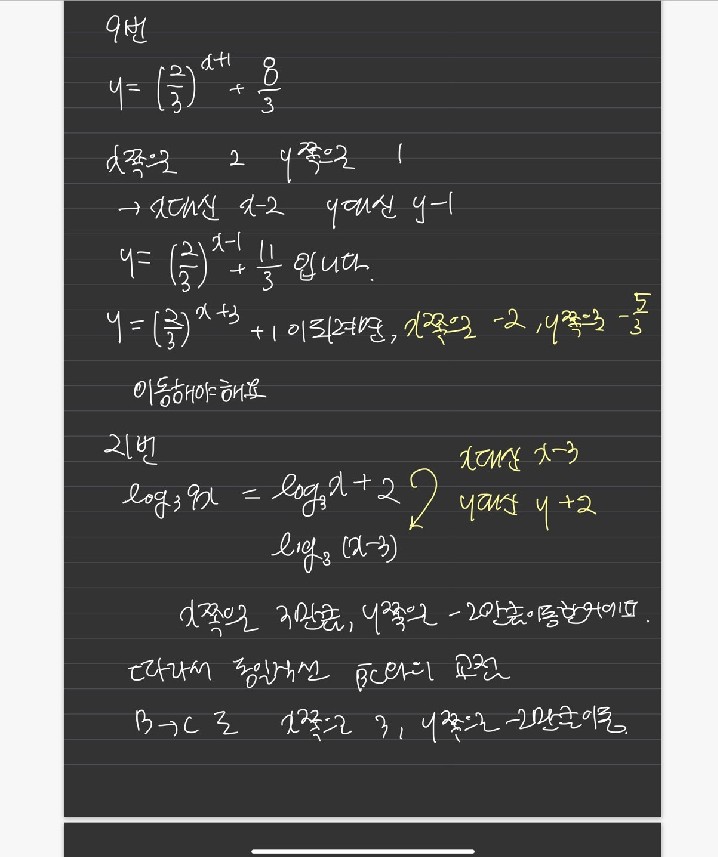 9번
y = (2/3)^{x+1} + 8/3
x쪽으로 2 y쪽으로 1
→ x대신 x-2 y대신 y-1
y = (2/3)^{x-1} + 11/3 입니다.
y = (2/3)^{x+3} + 1 이 되려면, x쪽으로 -2, y쪽으로 -5/3
이동해야해요
21번
log₃9x = log₃x + 2 x대신 x-3
log₃(x-3) y대신 y+2
x쪽으로 3만큼, y쪽으로 -2만큼 이동한거에요.
따라서 동일직선 BC와의 교점
B→C로 x쪽으로 3, y쪽으로 -2만큼 이동.